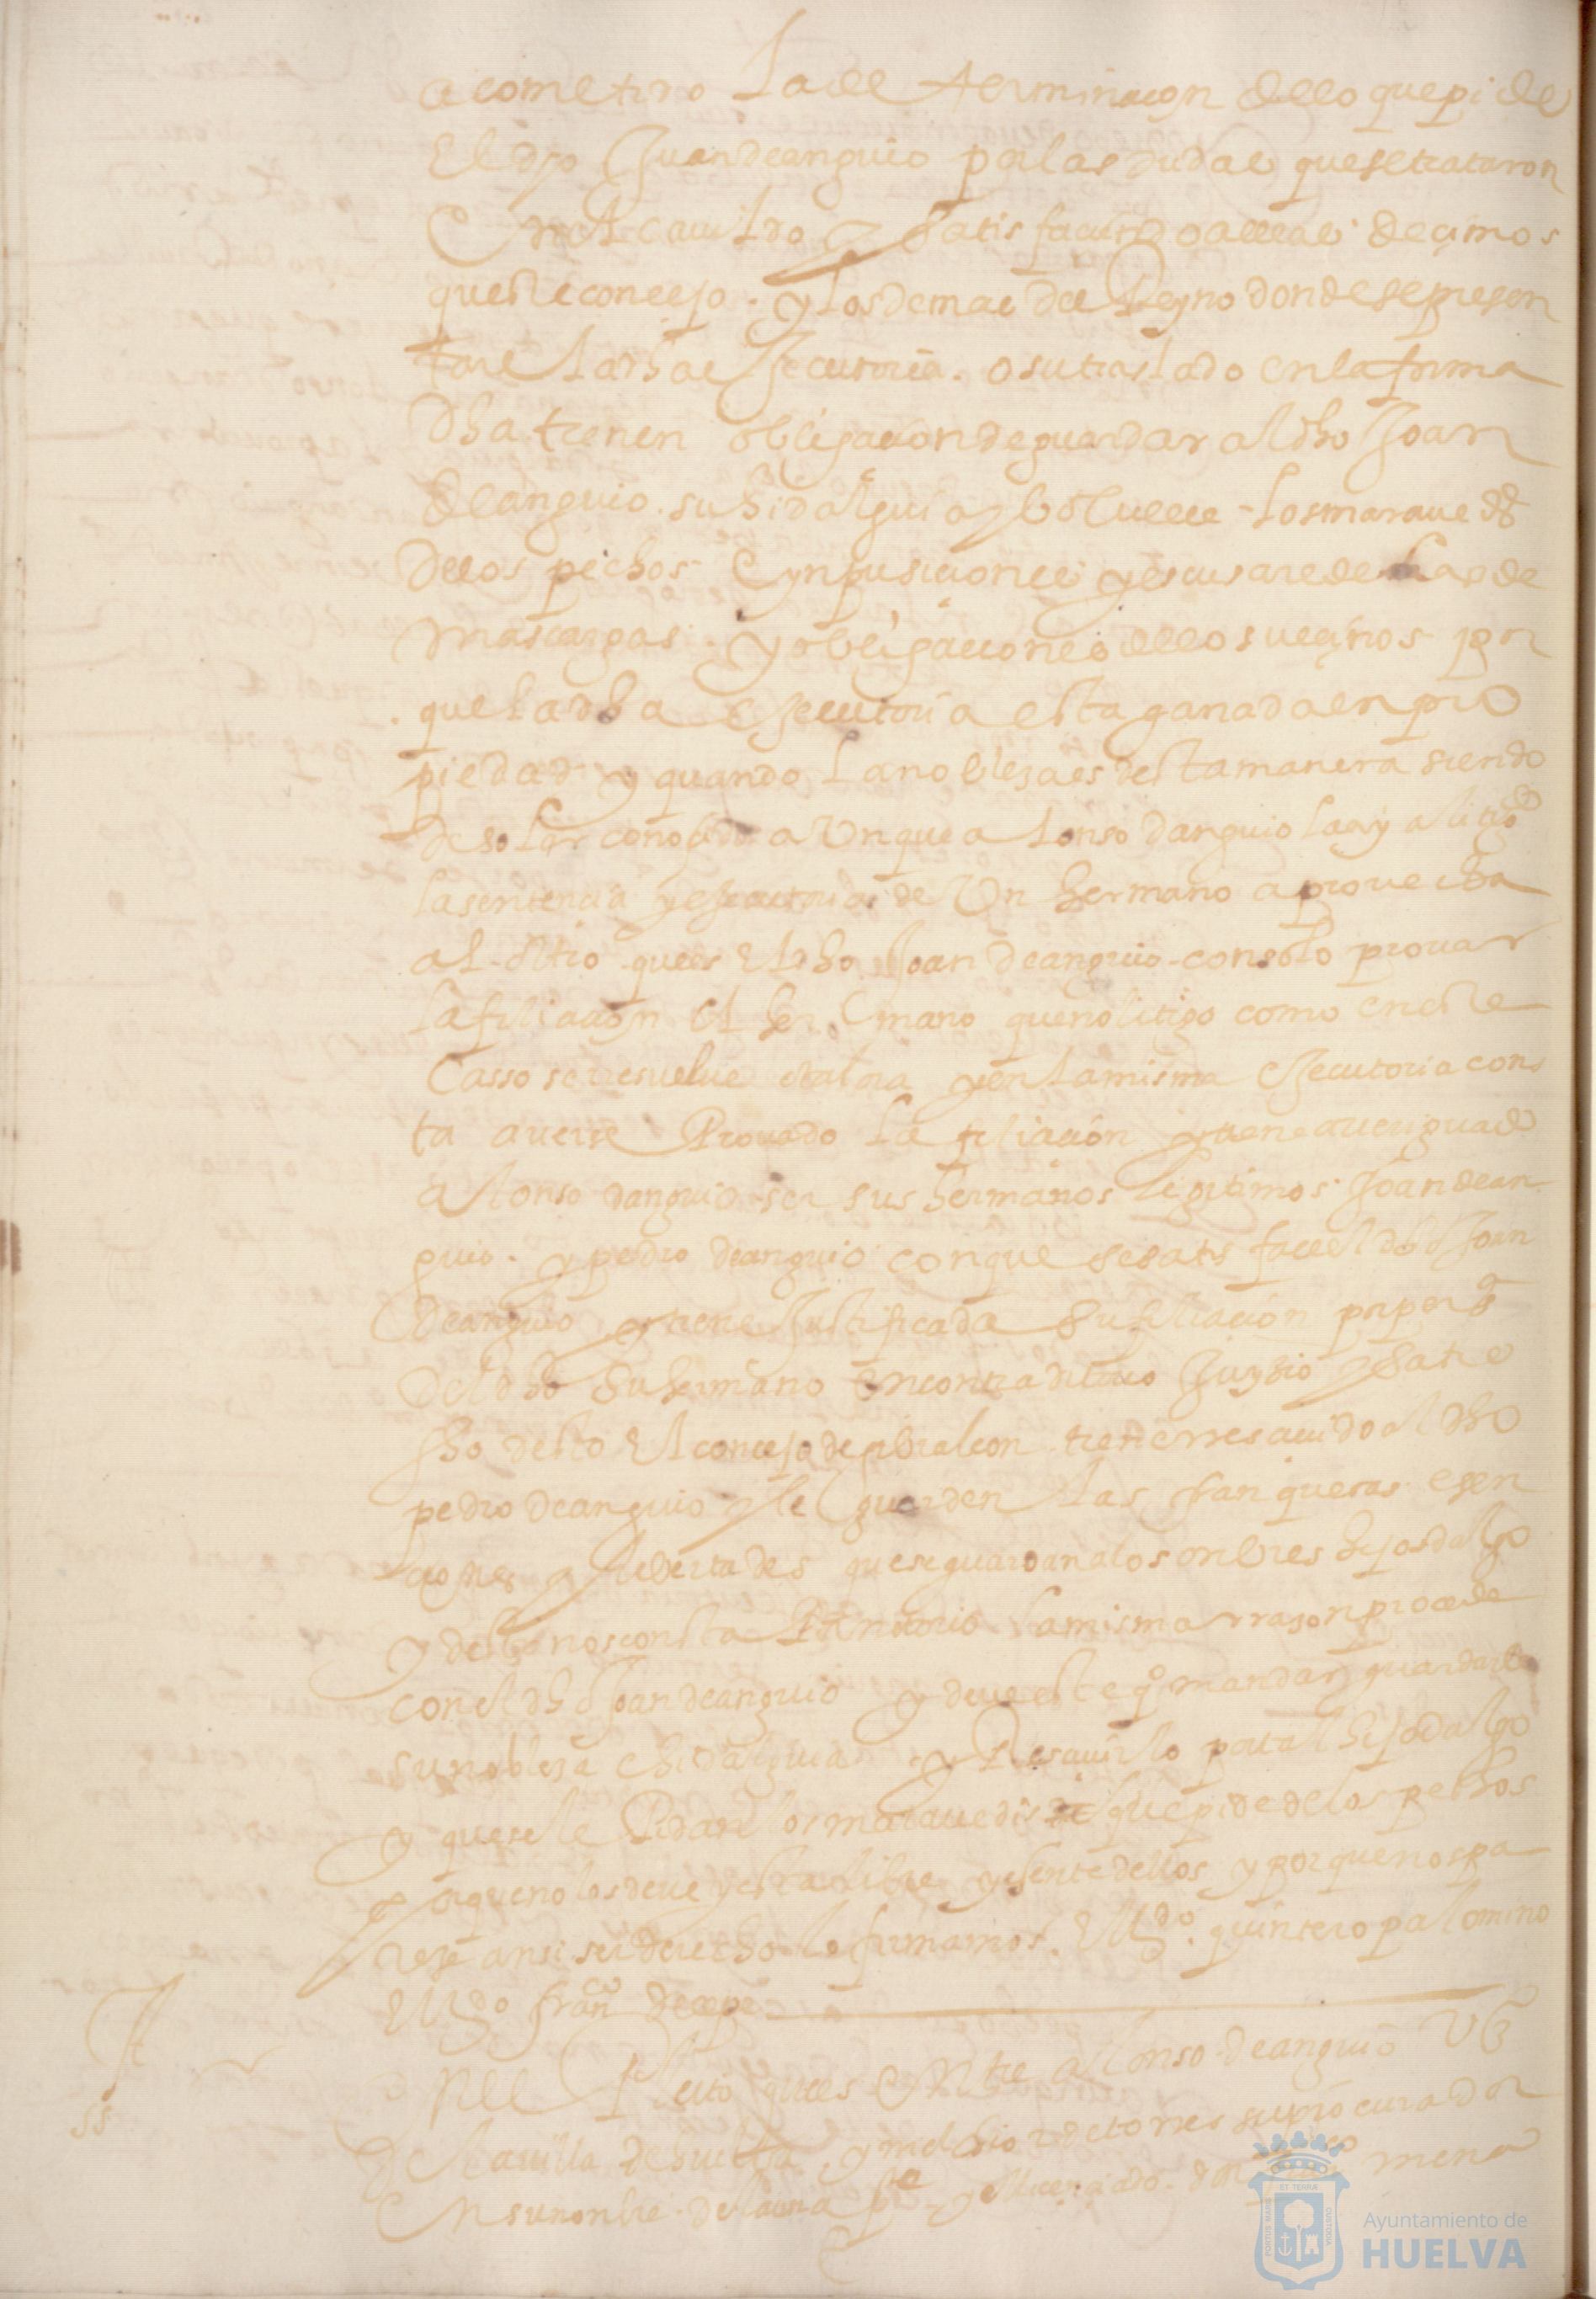 a cometido la determinaçion de lo que pide
El dho Juan de anguio por las dudas que se trataron
En el cauildo y satisfaciendo a ellas deçimos
que este concejo y los demas del Reyno donde se presen
tare la dha executoria o su traslado en la forma
dha tienen obligacion de guardar al dho Joan
de anguio su hidalguia y boluelle los maraued
de los pechos e ynpusiciones y escusare de las de
mas cargas y obligaciones de los veçinos por
que la dha executoria esta ganada en pro
piedad y quando la noblesa es desta manera siendo
de solar conoçido aunque alonso danguio la aya litigdo
la sentencia y executoria de Un hermano aprouecha
al otro que es el dho Joan de anguio con solo prouar
la filiaçion el hermano que no litigo como en este
Casso se resuelue y en la misma executoria cons
ta auerse Prouado la filiacion y tiene aueriguado
alonso danguio ser sus hermanos legitimos Joan dean
guio y pedro deanguio con que se satisface el dho Joan
deanguio y tiene Justificada su filiacion por persa
del dho su hermano en contraditorio Juysio y satis
fho desto el concejo de gibraleon tiene rresceuido al dho
pedro deanguio y le guarden las franquesas esen
ciones y libertades que se guardan a los onbres hijosdalgo
y desto nos consta Por notorio la misma rrason procede
con el dho Joan deanguio y deue este qo mandar guardarle
su noblesa e hidalguia y Resceuirlo por tal hijodalgo
y que se le los marauedis que pide de los pechos
porque no los deue y esta libre y esente dellos y porque nos pa
rese ansi ser derecho lo firmamos. El Ldo. quintero palomino
El Ldo franco
En El Pleito que es Entre alonso de anguio Vo
de la uilla de huelua y melchior de torres su procurador
En su nonbre de la una pte y el licenciado don mena
Ayuntamiento de
HUELVA